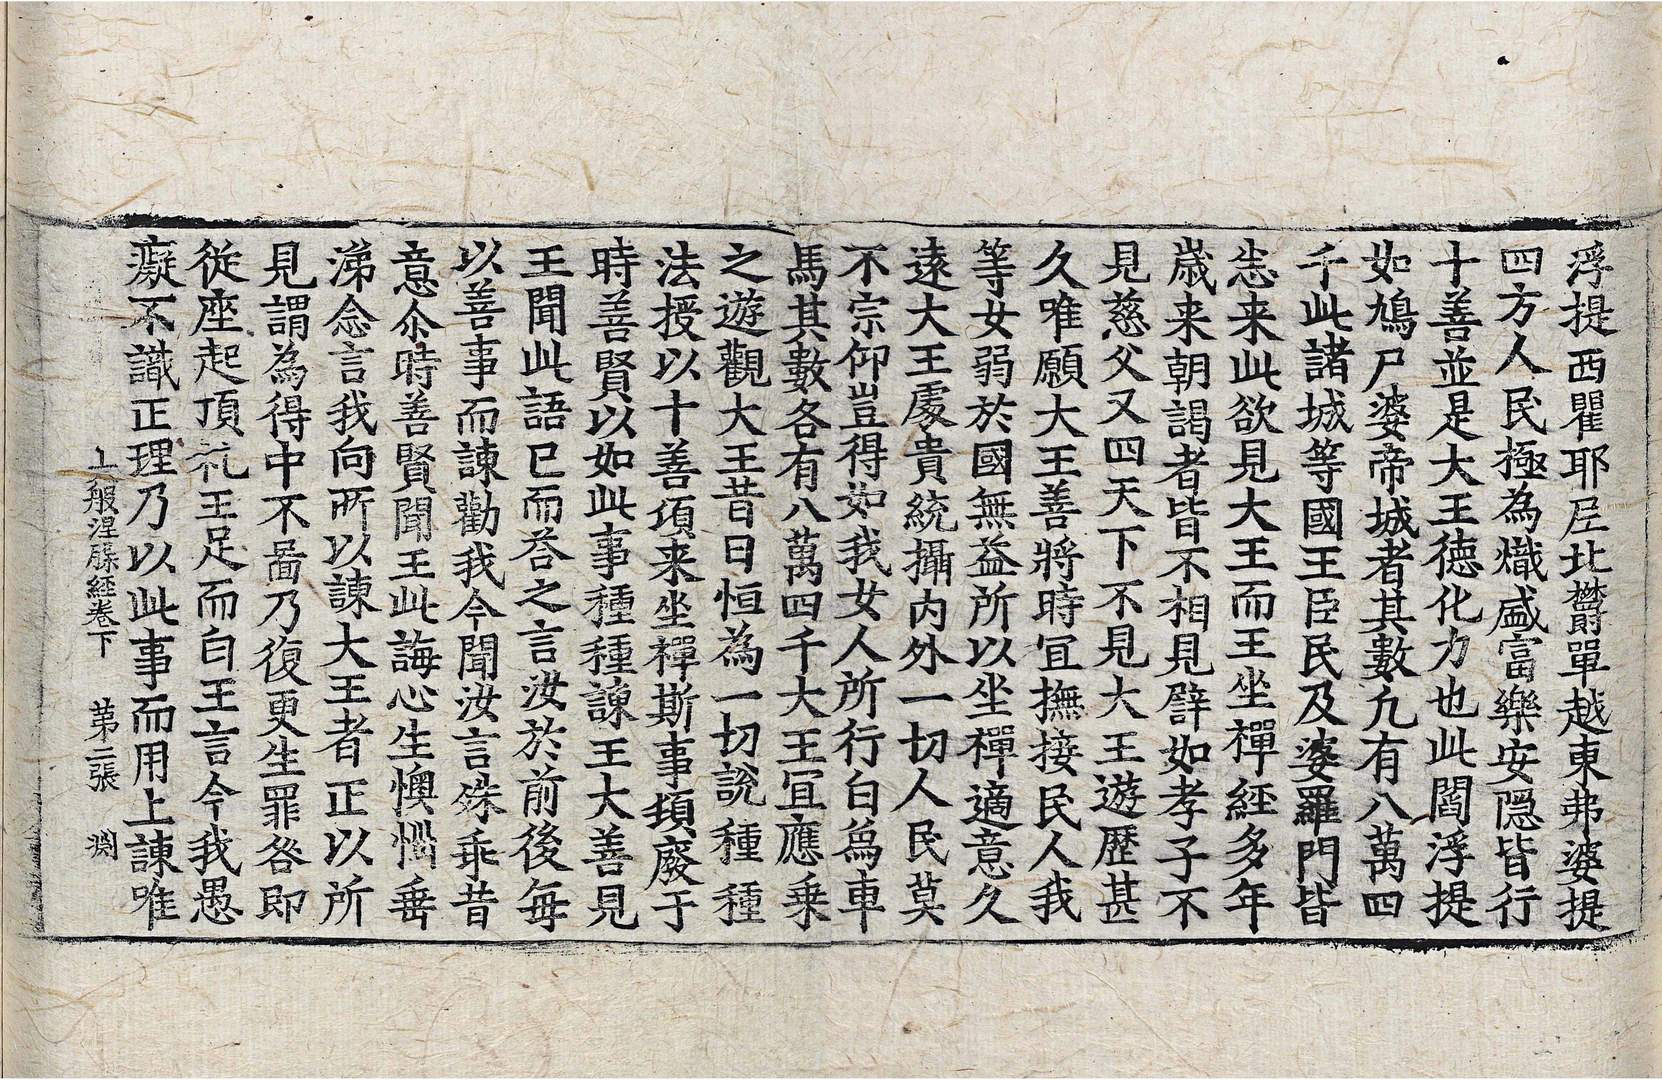 浮提西瞿耶尼北欝單越東弗婆提
四方人民極為熾盛富樂安隱皆行
十善並是大王德化力也此閻浮提
如鳩尸婆帝城者其數凡有八萬四
千此諸城等國王臣民及婆羅門皆
悉来此欲見大王而王坐禪經多年
歳来朝謁者皆不相見譬如孝子不
見慈父又四天下不見大王遊歷甚
久唯願大王善將時冝撫接民人我
等女弱於國無益所以坐禪適意久
遠大王處貴統攝内外一切人民莫
不宗仰豈得如我女人所行白為車
馬其數各有八萬四千大王冝應乗
之遊觀大王昔日恒為一切說種種
法授以十善頃来坐禪斯事損廢于
時善賢以如此事種種諫王大善見
王聞此語已而荅之言汝於前後每
以善事而諫勸我今聞汝言殊乖昔
意尒時善賢聞王此誨心生懊惱垂
涕念言我向所以諫大王者正以所
見謂為得中不啚乃復更生罪咎即
從座起頂礼王足而白王言今我愚
癡不識正理乃以此事而用上諫唯
般涅槃經卷下 第二張 渊